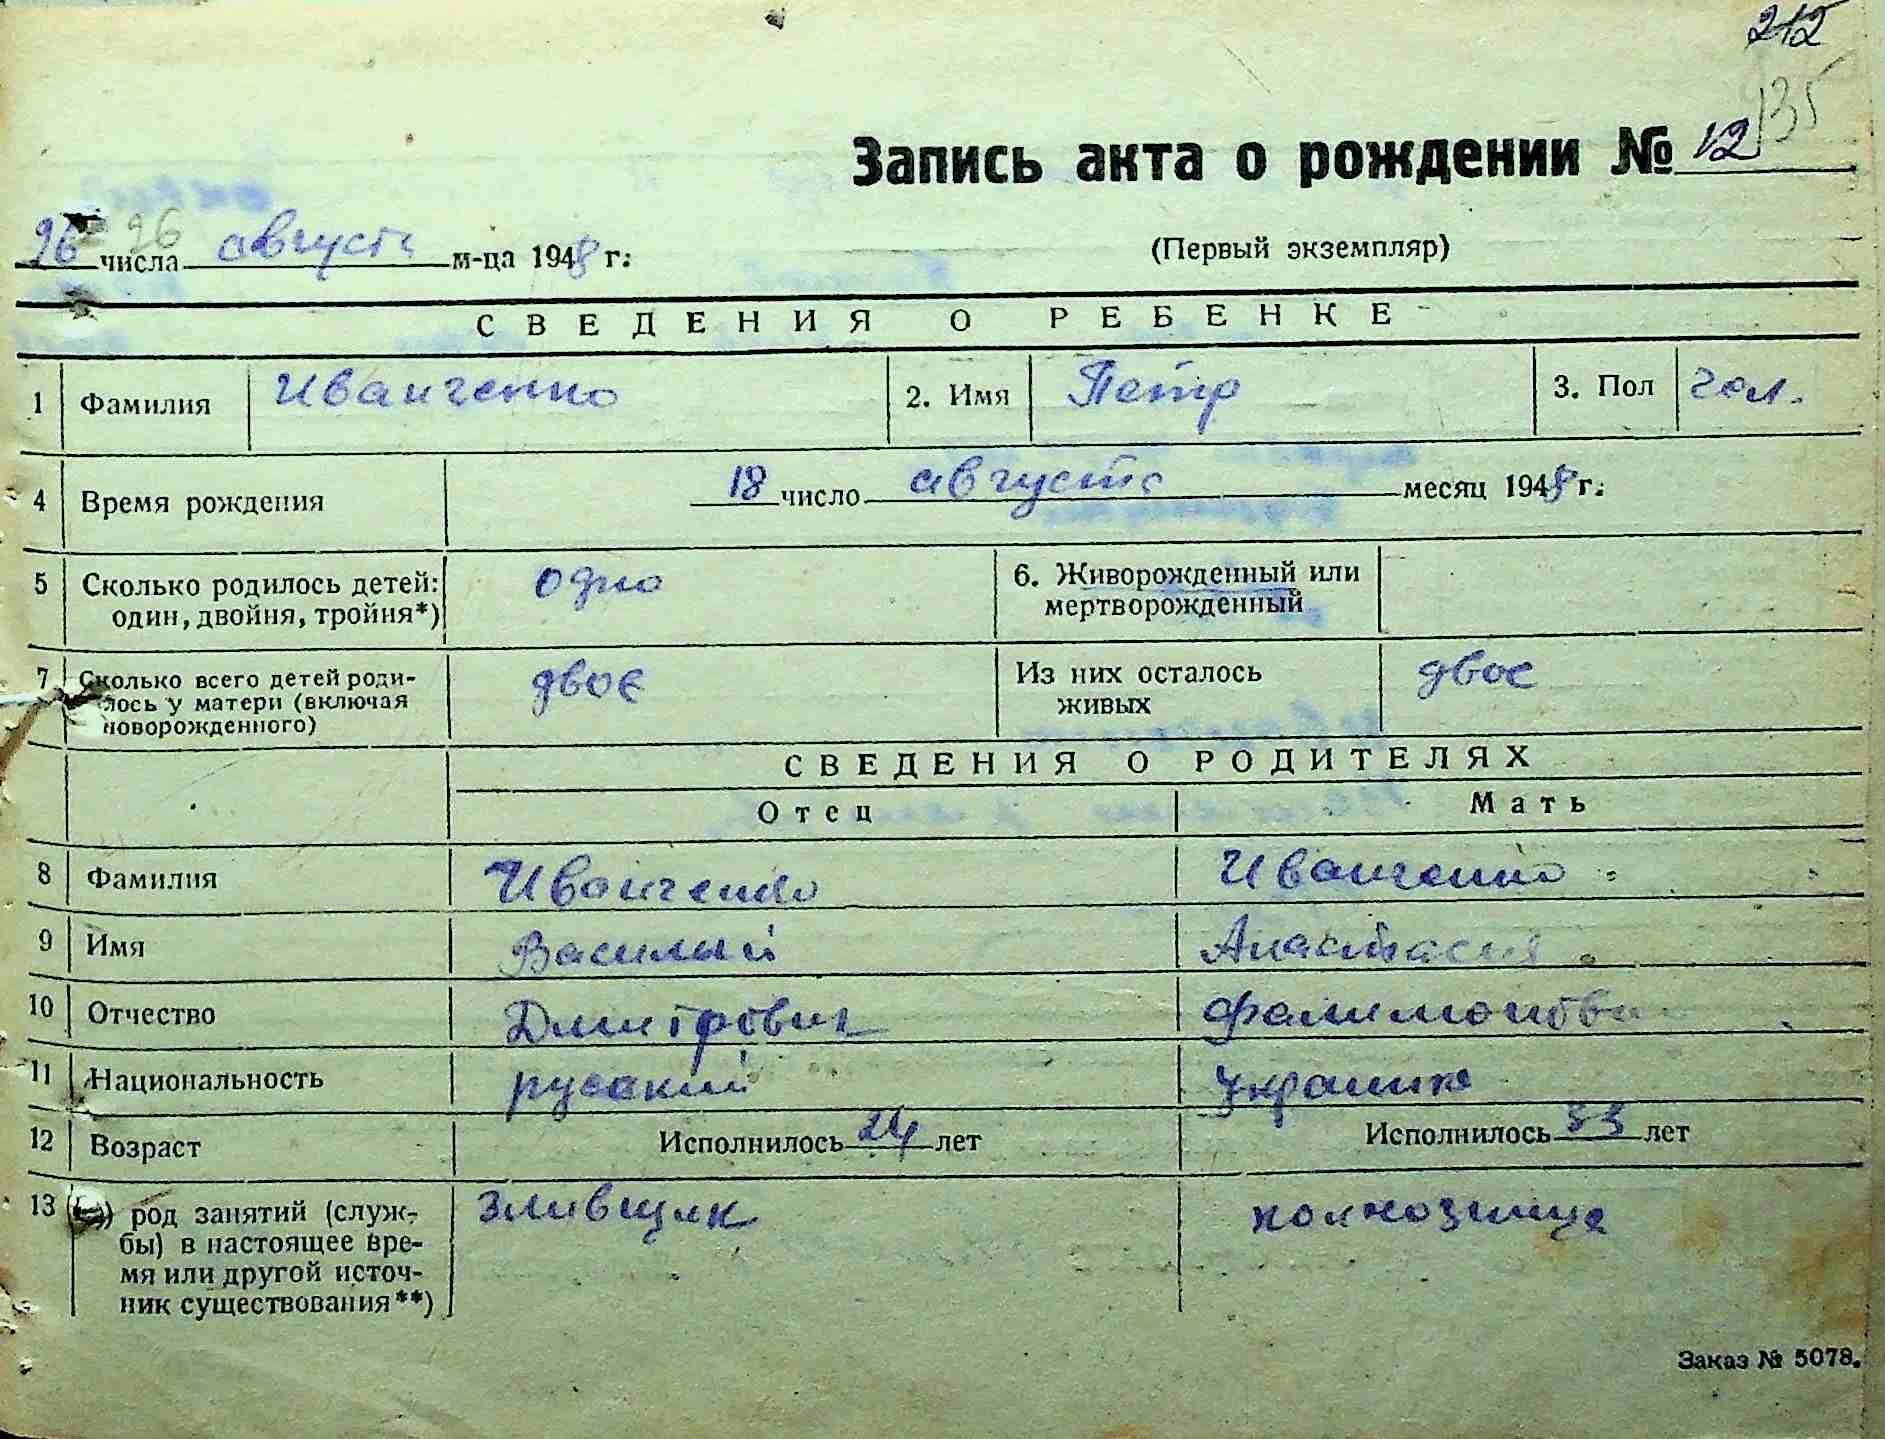 212
135
Запись акта о рождении № 12
26 26 числа августа м-ца 1948 г.
(Первый экземпляр)
СВЕДЕНИЯ О РЕБЕНКЕ
1 Фамилия Иванченко 2. Имя Петр 3. Пол чел.
4 Время рождения 18 число августа месяц 1948 г.
5 Сколько родилось детей: одно 6. Живорожденный или
один, двойня, тройня*) мертворожденный
7 Сколько всего детей роди- двое Из них осталось двое
лось у матери (включая живых
новорожденного)
СВЕДЕНИЯ О РОДИТЕЛЯХ
Отец Мать
8 Фамилия Иванченко Иванченко
9 Имя Василий Анастасия
10 Отчество Дмитрович Фалимонова
11 Национальность русский украинка
12 Возраст Исполнилось 24 лет Исполнилось 33 лет
13 род занятий (служ- зливщик колхозница
бы) в настоящее вре-
мя или другой источ-
ник существования**)
Заказ № 5078.